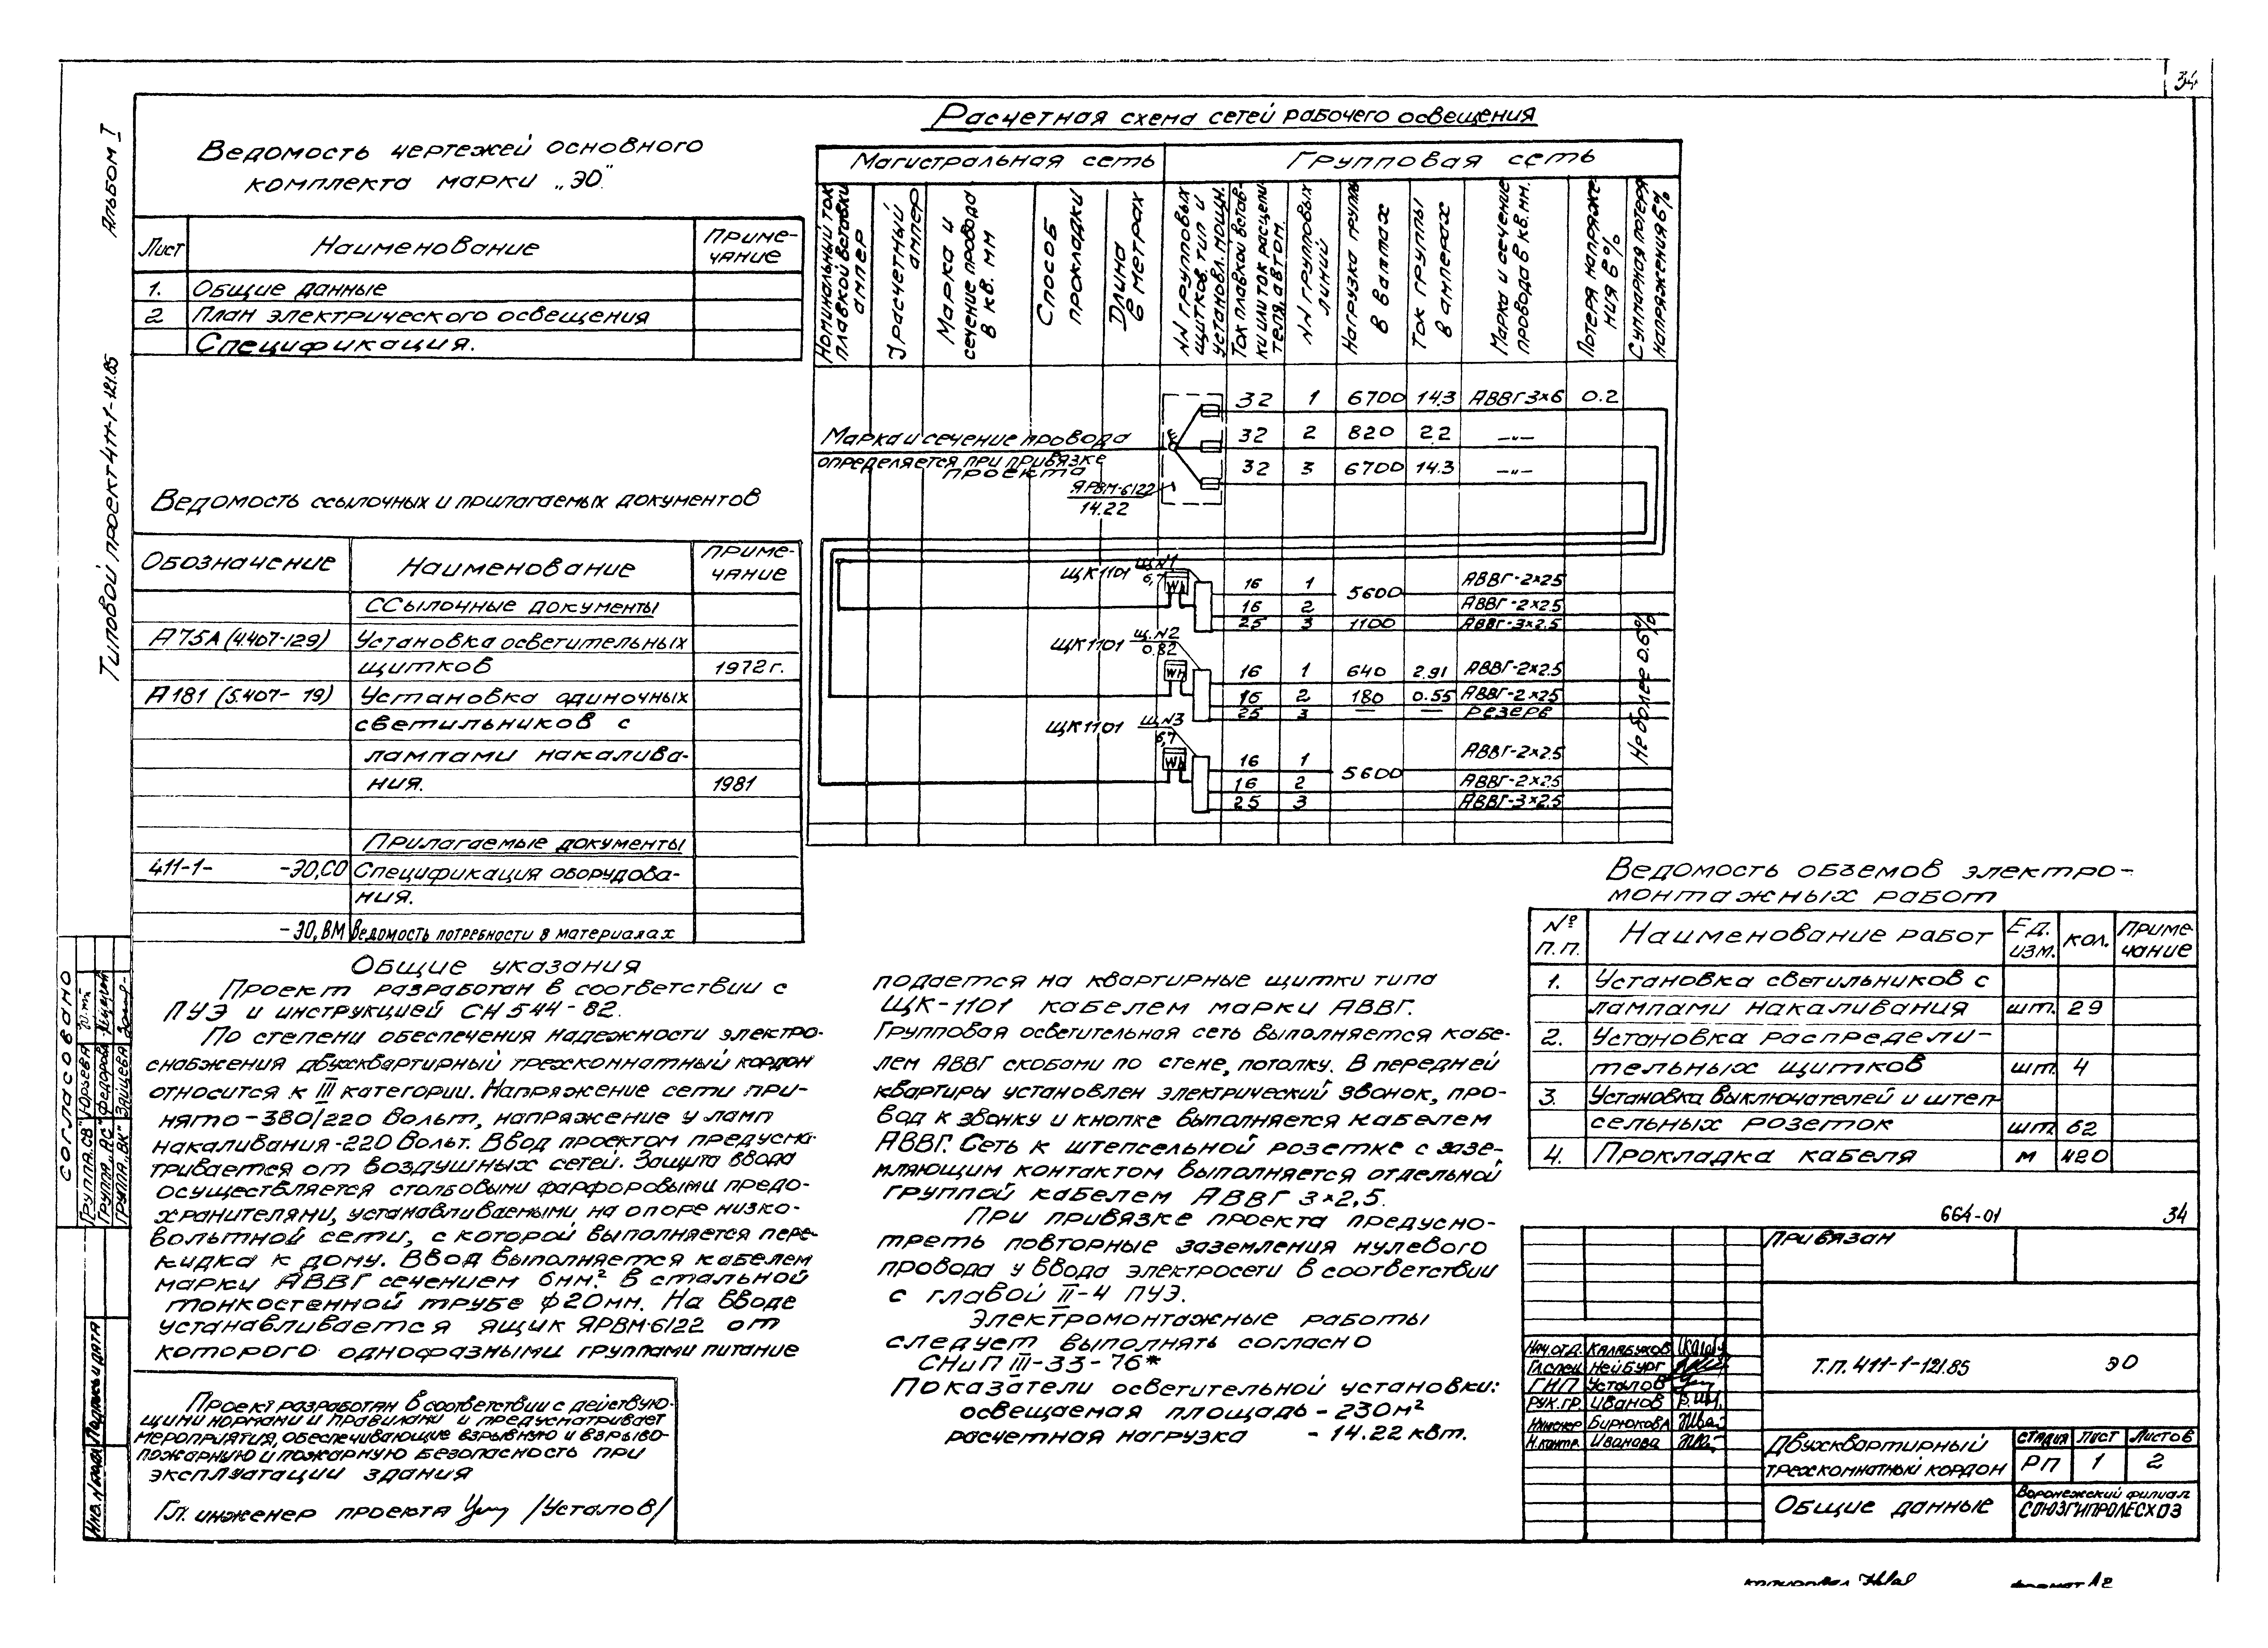 34
Альбом I
Типовой проект 411-1-121.85
Ведомость чертежей основного
комплекта марки „ЭО"
Лист
Наименование
Приме-
чание
1. Общие данные
2 План электрического освещения
Спецификация.
Ведомость ссылочных и прилагаемых документов
Обозначение
Наименование
Приме-
чание
Ссылочные документы
А75А (4.407-129) Установка осветительных
щитков 1972 г.
А181 (5.407-19) Установка одиночных
светильников с
лампами накалива-
ния. 1981
Прилагаемые документы
411-1- -ЭО,СО Спецификация оборудова-
ния.
-ЭО,ВМ Ведомость потребности в материалах
Расчетная схема сетей рабочего освещения
Магистральная сеть
Групповая сеть
Номинальный ток
плавкой вставки
ампер
Jрасчетный
ампер
Марка и
сечение провода
в кв. мм
Способ
прокладки
Длина
в метрах
NN групповых
щитков, тип и
установл. мощн.
Ток плавкой встав-
ки или ток расцепи-
теля, автом.
NN групповых
линий
Нагрузка группы
в ваттах
Ток группы
в амперах
Марка и сечение
провода в кв. мм.
Потеря напряже-
ния в %
Суммарная потеря
напряжения в %
32 1 6700 14.3 АВВГ3×6 0.2
Марка и сечение провода
определяется при привязке
проекта
32 2 820 2.2 —„—
32 3 6700 14.3 —„—
ЯРВМ-6122
14.22
ЩК1101 Щ.N1
6,7
Wh
16 1 5600 АВВГ-2×2.5
16 2 АВВГ-2×2.5
25 3 1100 АВВГ-3×2.5
ЩК1101 Щ.N2
0.82
Wh
16 1 640 2.91 АВВГ-2×2.5
16 2 180 0.55 АВВГ-2×2.5
25 3 — — Резерв
ЩК1101 Щ.N3
6,7
Wh
16 1 5600 АВВГ-2×2.5
16 2 АВВГ-2×2.5
25 3 АВВГ-3×2.5
Не более 0.6%
Общие указания
Проект разработан в соответствии с
ПУЭ и инструкцией СН 544-82.
По степени обеспечения надежности электро-
снабжения двухквартирный трехкомнатный кордон
относится к III категории. Напряжение сети при-
нято-380/220 Вольт, напряжение у ламп
накаливания-220 Вольт. Ввод проектом предусма-
тривается от воздушных сетей. Защита ввода
осуществляется столбовыми фарфоровыми предо-
хранителями, устанавливаемыми на опоре низко-
вольтной сети, с которой выполняется пере-
кидка к дому. Ввод выполняется кабелем
марки АВВГ сечением 6мм². В стальной
тонкостенной трубе ф20мм. На вводе
устанавливается ящик ЯРВМ-6122 от
которого однофазными группами питание
подается на квартирные щитки типа
ЩК-1101 кабелем марки АВВГ.
Групповая осветительная сеть выполняется кабе-
лем АВВГ скобами по стене, потолку. В передней
квартиры установлен электрический звонок, про-
вод к звонку и кнопке выполняется кабелем
АВВГ. Сеть к штепсельной розетке с зазе-
мляющим контактом выполняется отдельной
группой кабелем АВВГ 3×2,5.
При привязке проекта предусмо-
треть повторные заземления нулевого
провода у ввода электросети в соответствии
с главой II-4 ПУЭ.
Электромонтажные работы
следует выполнять согласно
СНиП III-33-76*
Показатели осветительной установки:
освещаемая площадь - 230м²
расчетная нагрузка - 14.22 квт.
Проект разработан в соответствии с действую-
щими нормами и правилами и предусматривает
мероприятия, обеспечивающие взрывную и взрыво-
пожарную и пожарную безопасность при
эксплуатации здания
Гл. инженер проекта /Усталов/
Ведомость объемов электро-
монтажных работ
№
п.п.
Наименование работ
Ед.
изм.
кол.
Приме-
чание
1. Установка светильников с
лампами накаливания шт. 29
2. Установка распредели-
тельных щитков шт. 4
3. Установка выключателей и штеп-
сельных розеток шт 62
4. Прокладка кабеля м 420
664-01 34
Привязан
Нач.отд. Калабухов
Гл.спец Нейбург
ГИП Усталов
Рук.гр. Иванов
Инженер Бирюкова
Н.контр. Иванова
Т.П. 411-1-121.85 ЭО
Двухквартирный
трехкомнатный кордон
стадия Лист Листов
РП 1 2
Общие данные
Воронежский филиал
СОЮЗГИПРОЛЕСХОЗ
Согласовано
Группа „СВ" Юрьева
Группа „АС" Федорова
Группа „ВК" Зайцева
Инв. N подл Подпись и дата
копировал
формат А2